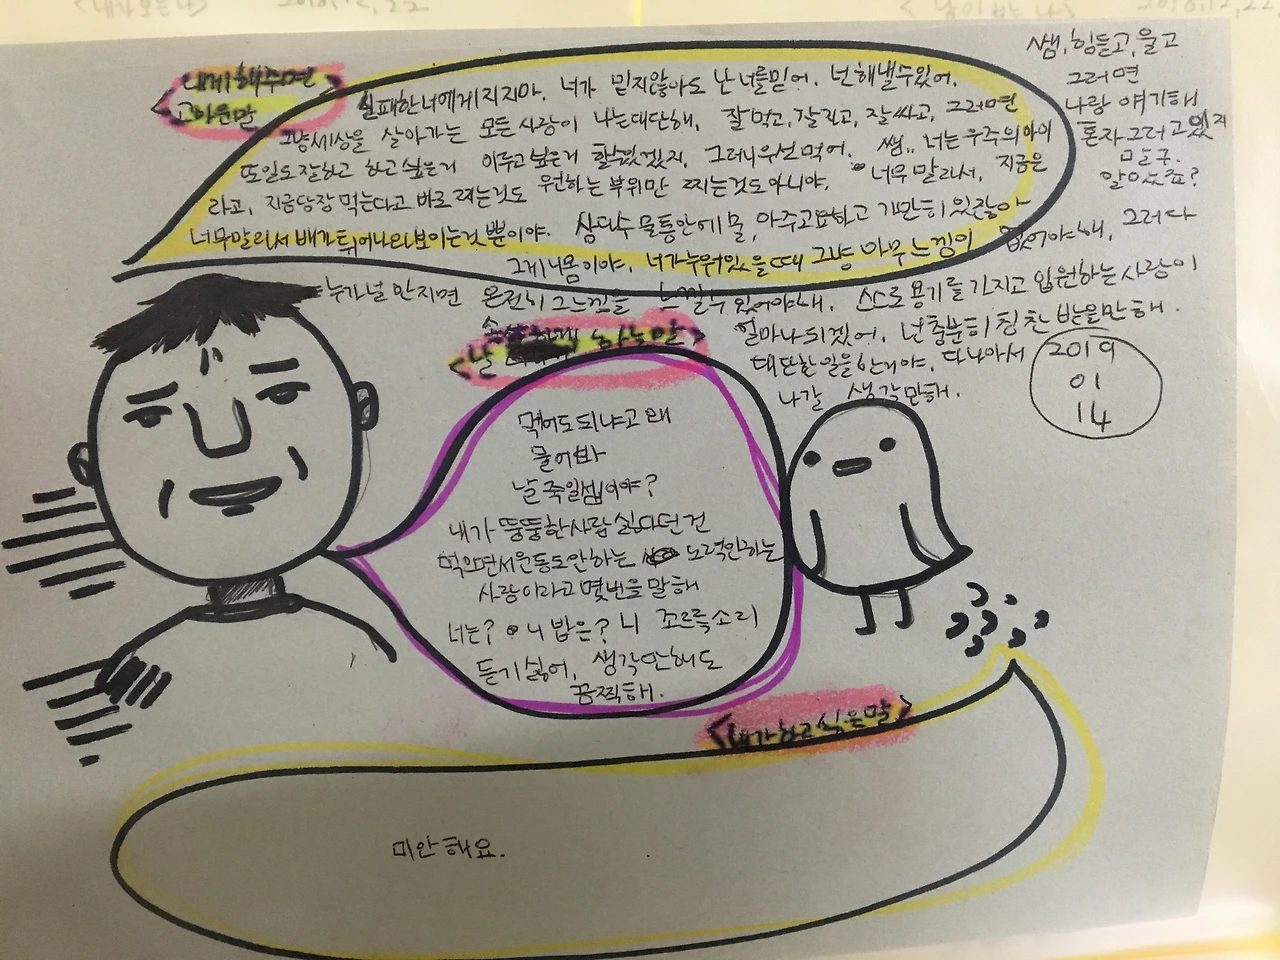 <내가 보는 나> 2018.12.22
<남이 보는 나> 2018.12.22.
<내게 해주면
고마운말>
실패한 너에게 지지마. 너가 믿지않아도 난 너를믿어. 넌 해낼수있어.
그냥세상을 살아가는 모든 사람이 나는대단해, 잘먹고, 잘자고, 잘싸고, 그러면
또일도잘하고 하고싶은거 이루고싶은거 할수있겠지, 그러니우선먹어. 쌤.. 너는우주의아이
라고, 지금당장 먹는다고 바로찌는것도 원하는 부위만 찌는것도아니야, 너무 말라서, 지금은
너무말라서 배가튀어나와보이는것뿐이야. 삼다수 물통안에물, 아주고요하고 가만히있잖아
그게니몸이야, 너가누워있을때 그냥 아무느낌이 없어야해, 그러다
누가널 만지면 온전히 그느낌을 느낄수있어야해. 스스로용기를가지고 입원하는사람이
얼마나되겠어, 넌충분히칭찬받을만해.
대단한일을한거야, 다나아서
나갈 생각만해.
쌤, 힘들고, 울고
그러면
나랑 얘기해
혼자그러고있지
말구.
알았죠?
2019
01
14
<날 속상하게 하는말>
먹어도되냐고왜
물어봐
날죽일셈이야?
내가뚱뚱한사람싫다던건
먹으면서운동도안하는 노력안하는
사람이라고몇번을말해
너는? 니 밥은? 니 조르륵소리
듣기싫어, 생각만해도
끔찍해.
<내가하고싶은말>
미안해요.